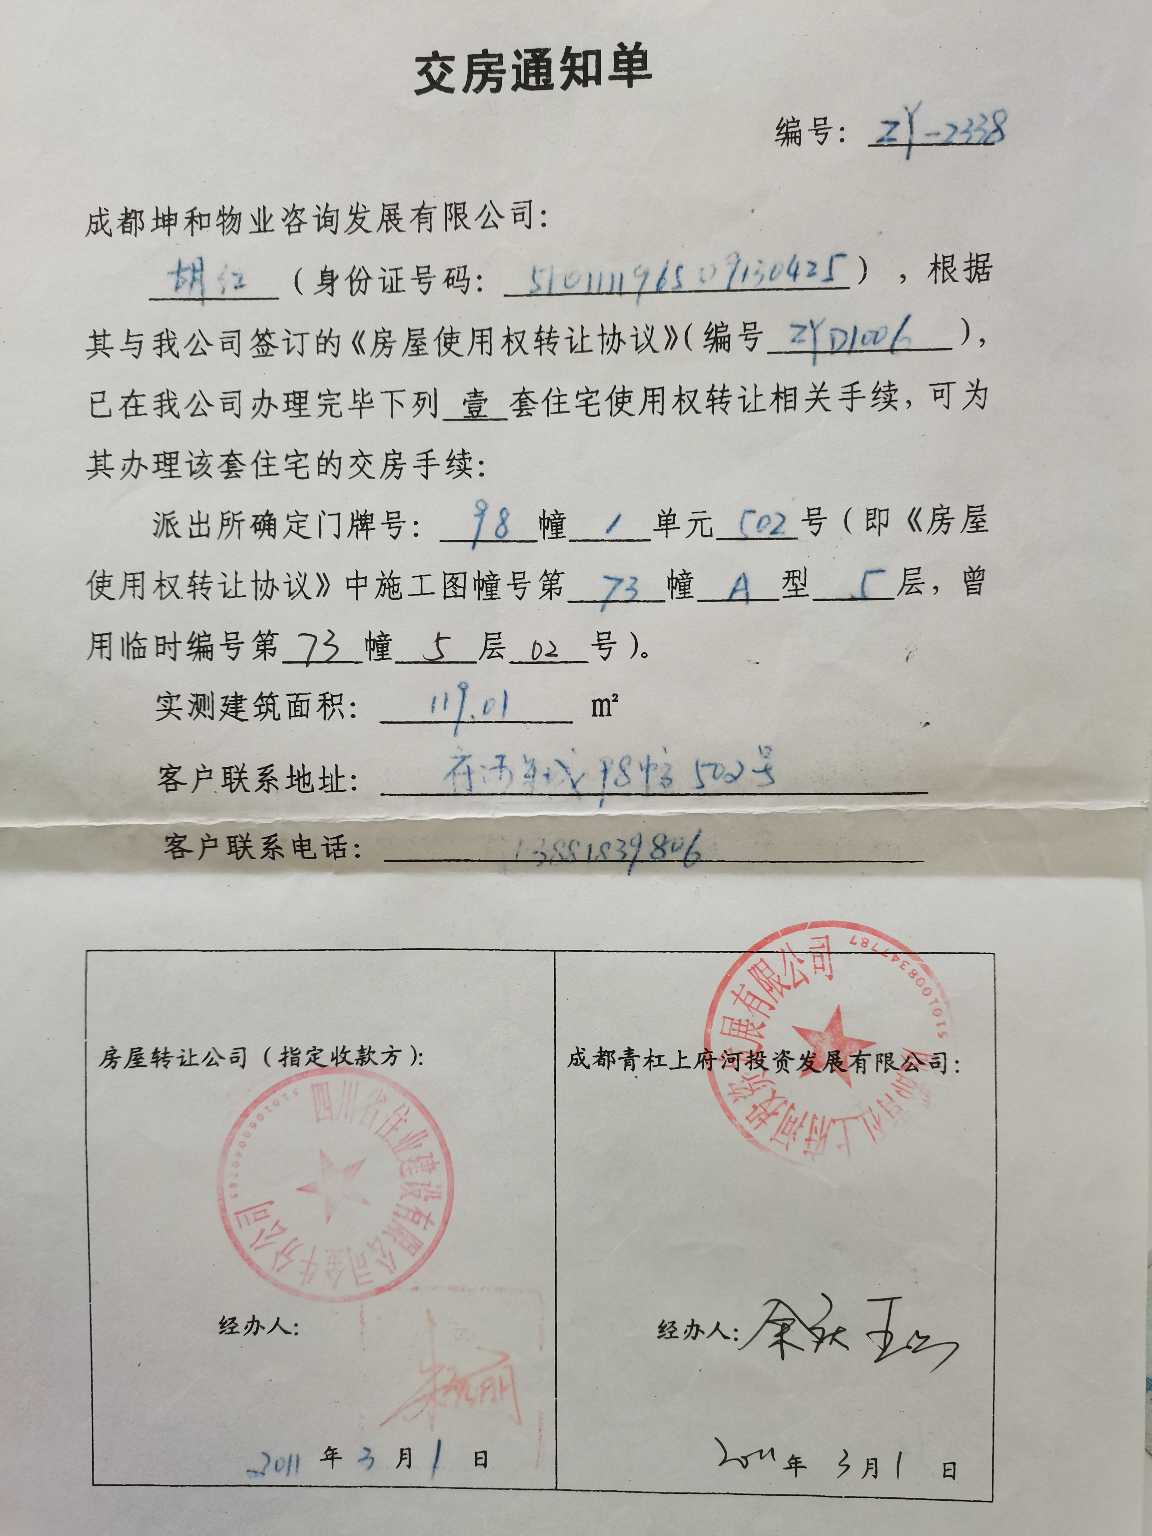 交房通知单
编号：ZY-2338
成都坤和物业咨询发展有限公司：
胡红（身份证号码：510111196509130425），根据
其与我公司签订的《房屋使用权转让协议》（编号ZYD1006），
已在我公司办理完毕下列壹套住宅使用权转让相关手续，可为
其办理该套住宅的交房手续：
派出所确定门牌号：98幢1单元502号（即《房屋
使用权转让协议》中施工图幢号第73幢A型5层，曾
用临时编号第73幢5层02号）。
实测建筑面积：119.01 m²
客户联系地址：府河 98幢502号
客户联系电话：13881839806
房屋转让公司（指定收款方）：
四川省住业建设有限公司金牛分公司
经办人：
2011年3月1日
成都青杠上府河投资发展有限公司：
成都青杠上府河投资发展有限公司
5101008347787
经办人：
2011年3月1日